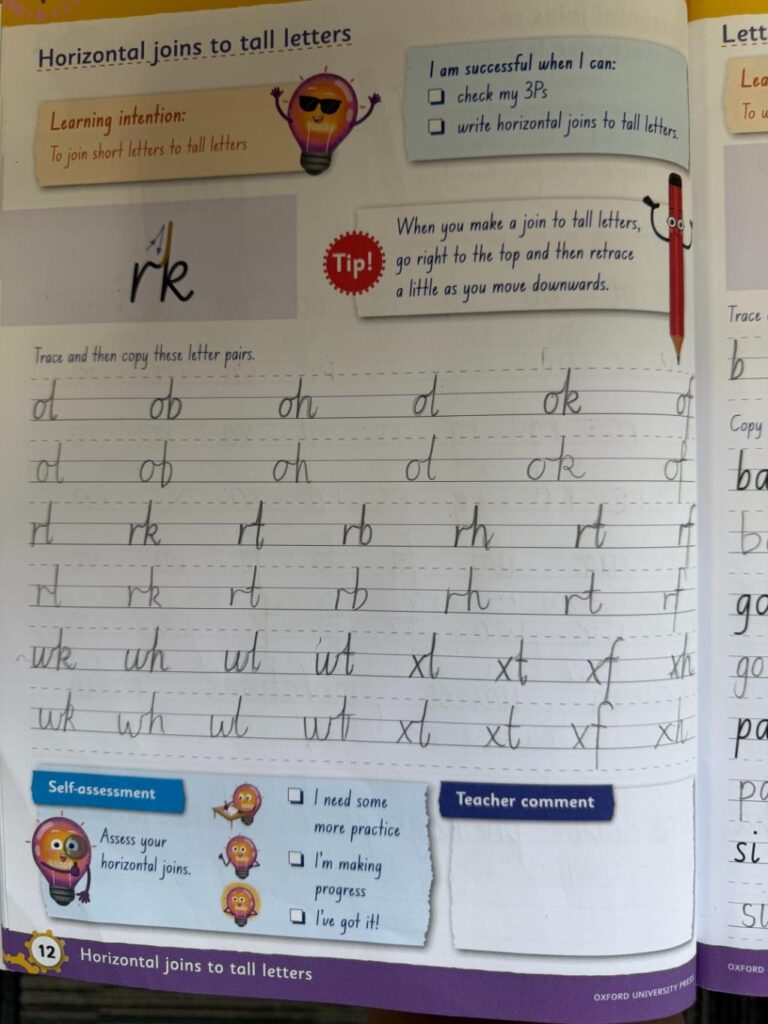 Horizontal joins to tall letters
Learning intention:
To join short letters to tall letters
I am successful when I can:
check my 3Ps
write horizontal joins to tall letters.
rk
Tip!
When you make a join to tall letters,
go right to the top and then retrace
a little as you move downwards.
Trace and then copy these letter pairs.
ol ob oh ol ok of
ol ob oh ol ok of
rl rk rt rb rh rt rf
rl rk rt rb rh rt rf
wk wh wl wt xl xt xf xh
wk wh wl wt xl xt xf xh
Self-assessment
Assess your
horizontal joins.
I need some
more practice
I'm making
progress
I've got it!
Teacher comment
12 Horizontal joins to tall letters
OXFORD UNIVERSITY PRESS
Trace
b
Copy
ba
go
go
pa
pa
si
OXFORD